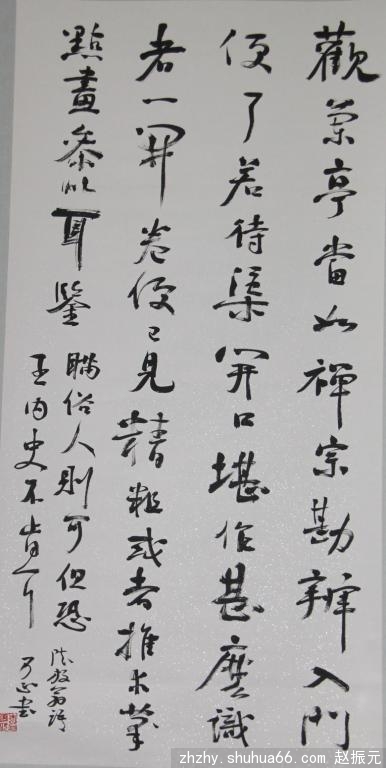 觀蘭亭當如禪宗勘辨入門
便了若待渠開口堪作甚麼識
者一開卷便已見精粗或者推求
點畫參以耳鑒
瞞俗人則可但恐
王内史不肯耳
陸放翁語
書
zhzhy.shuhua66.com 赵振元